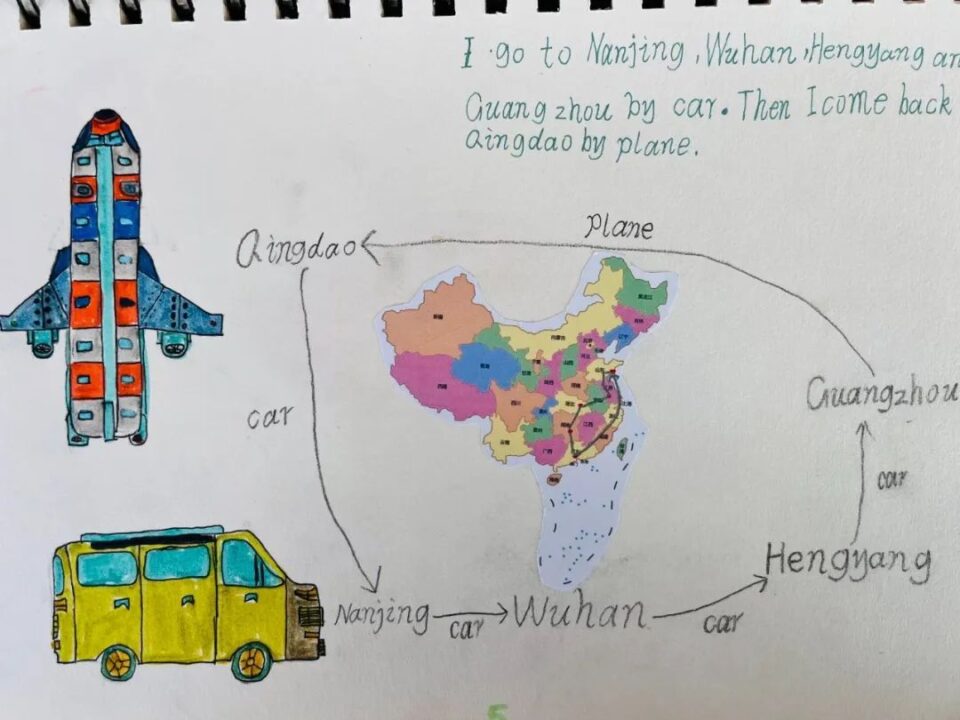 I go to Nanjing, Wuhan, Hengyang an
Guangzhou by car. Then I come back
Qingdao by plane.
plane
Qingdao
car
Guangzhou
car
Hengyang
Nanjing
car
Wuhan
car
新疆
西藏
青海
内蒙古
黑龙江
四川
云南
广西
江西
5